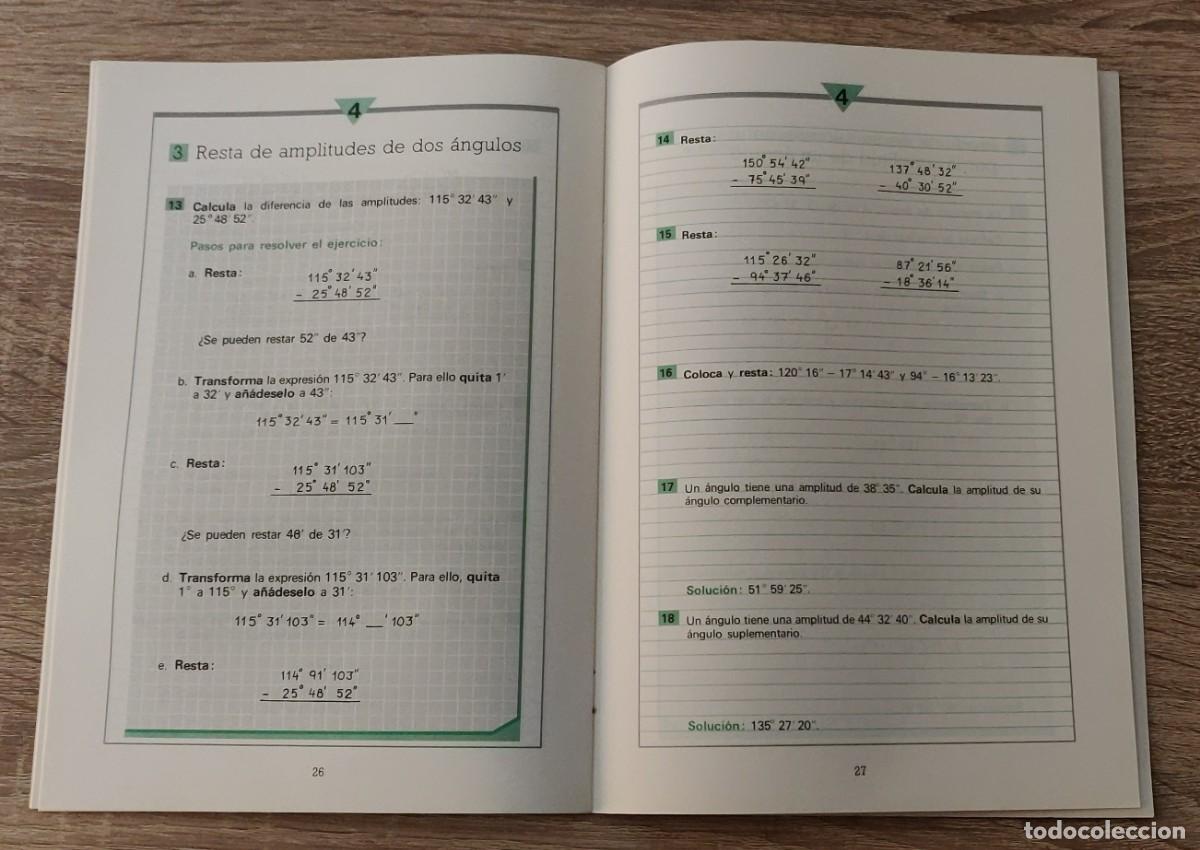 4
3 Resta de amplitudes de dos ángulos
13 Calcula la diferencia de las amplitudes: 115° 32' 43'' y
25° 48' 52''.
Pasos para resolver el ejercicio:
a. Resta: 115° 32' 43''
– 25° 48' 52''
¿Se pueden restar 52'' de 43''?
b. Transforma la expresión 115° 32' 43''. Para ello quita 1'
a 32' y añádeselo a 43'':
115° 32' 43'' = 115° 31' __''
c. Resta: 115° 31' 103''
– 25° 48' 52''
¿Se pueden restar 48' de 31'?
d. Transforma la expresión 115° 31' 103''. Para ello, quita
1° a 115° y añádeselo a 31':
115° 31' 103'' = 114° __' 103''
e. Resta: 114° 91' 103''
– 25° 48' 52''
26
4
14 Resta:
150° 54' 42'' 137° 48' 32''
– 75° 45' 39'' – 40° 30' 52''
15 Resta:
115° 26' 32'' 87° 21' 56''
– 94° 37' 46'' – 18° 36' 14''
16 Coloca y resta: 120° 16'' – 17° 14' 43'' y 94° – 16° 13' 23''.
17 Un ángulo tiene una amplitud de 38° 35''. Calcula la amplitud de su
ángulo complementario.
Solución: 51° 59' 25''.
18 Un ángulo tiene una amplitud de 44° 32' 40''. Calcula la amplitud de su
ángulo suplementario.
Solución: 135° 27' 20''.
27
todocoleccion